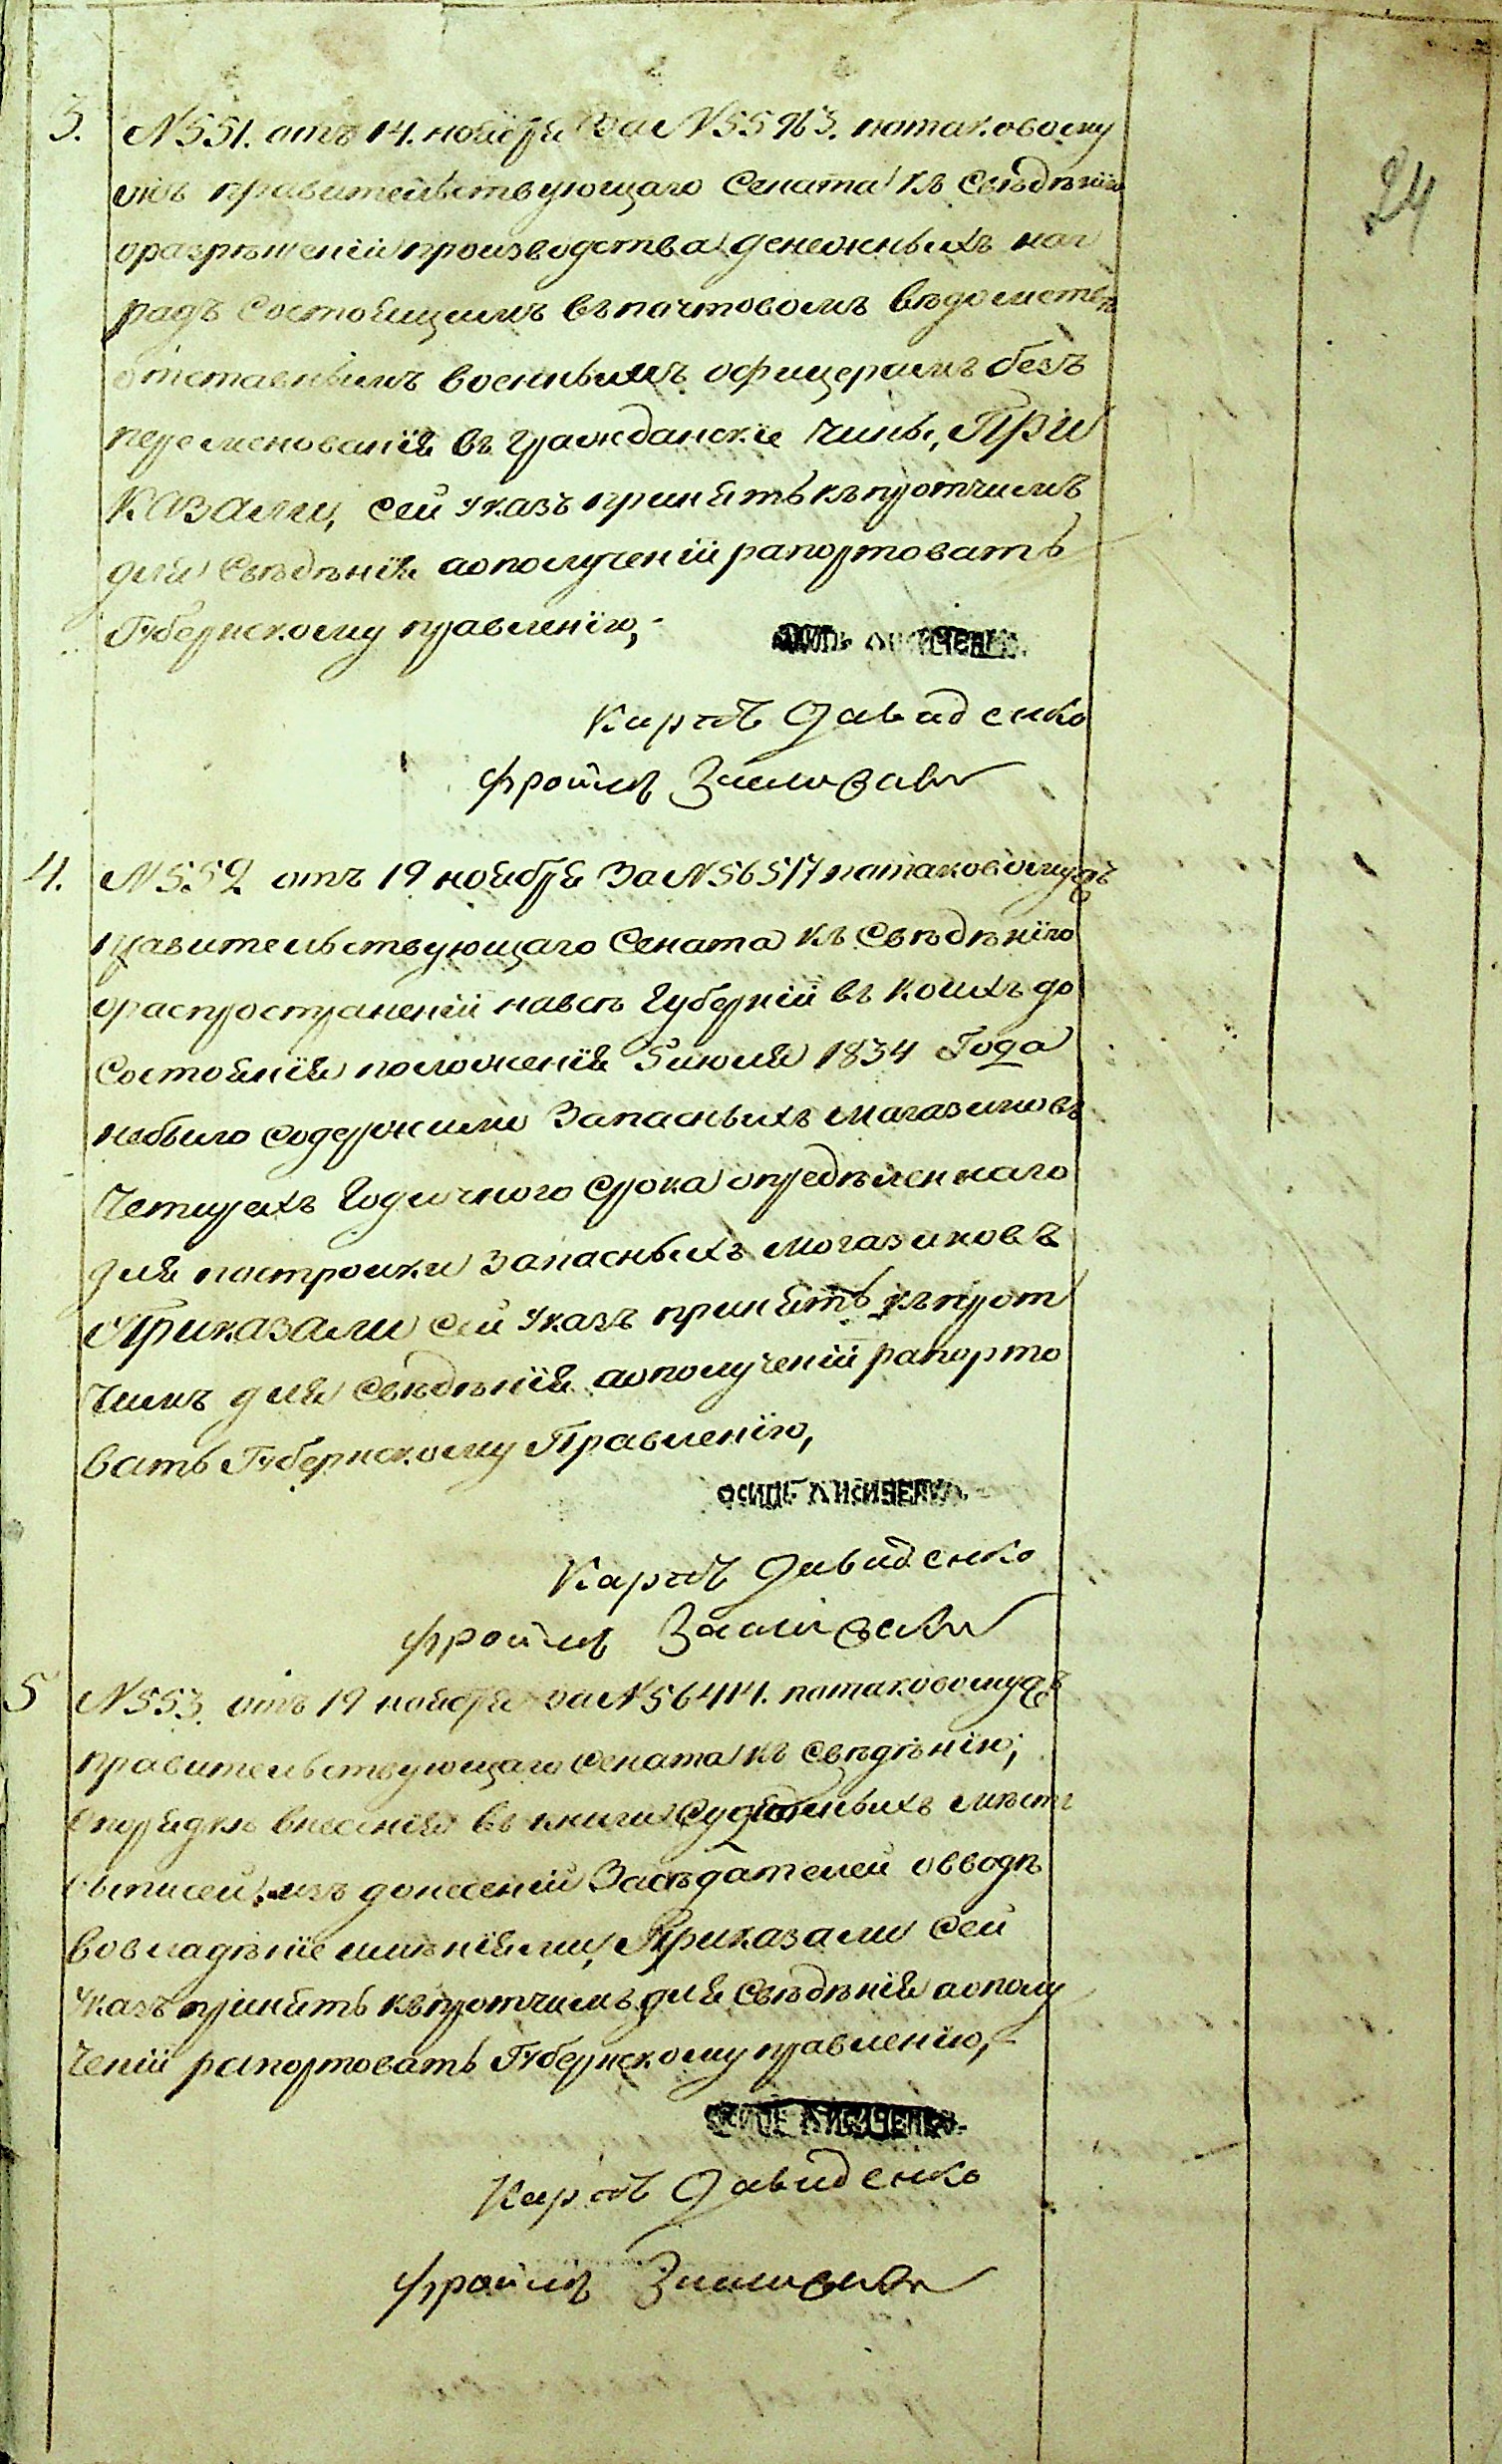 24
3. N 551. отъ 14. ноября За N 55963. потаковому
изъ правительствующаго Сената къ Свѣденію
оразрѣшеніи производства денежныхъ наг
радъ Состоящимъ въ почтовомъ вѣдомствѣ
отставнымъ военнымъ офицерамъ безъ
переменованія въ гражданскіе чины, При
казали, сей указъ принять къ протчимъ
для Свѣденія аополученіи рапортовать
Губернскому правленію,-
осипъ лисиченко.
Карпъ Давиденко
Фроимъ
4. N 552 отъ 19 ноября За N 56517 потаковому изъ
правительствующаго Сената къ Свѣденію
ораспространеніи навсѣ Губерніи въ коихъ до
Состоянія положенія 5 июля 1834 Года
небыло содержимо Запасныхъ магазиновъ
Четырехъ Годичного Срока опредѣленнаго
для постройки Запасныхъ могазиновъ
Приказали сей указъ принять къ прот
чимъ для свѣденія аополученіи рапорто
вать Губернскому Правленію,
осипъ лисиченко.
Карпъ Давиденко
Фроимъ
5 N 553. отъ 19 ноября за N 56414. потаковому изъ
правительствующаго Сената къ Свѣдѣнію,
опорядкѣ внесенія въ книги Судебныхъ мѣстъ
выписей изъ донесеній Засѣдателей овводѣ
вовладѣніе имѣніями, Приказали Сей
указъ принять къ протчимъ для Свѣдѣнія аополу
ченіи рапортовать Губернскому правленію,-
осипъ лисиченко.
Карпъ Давиденко
Фроимъ